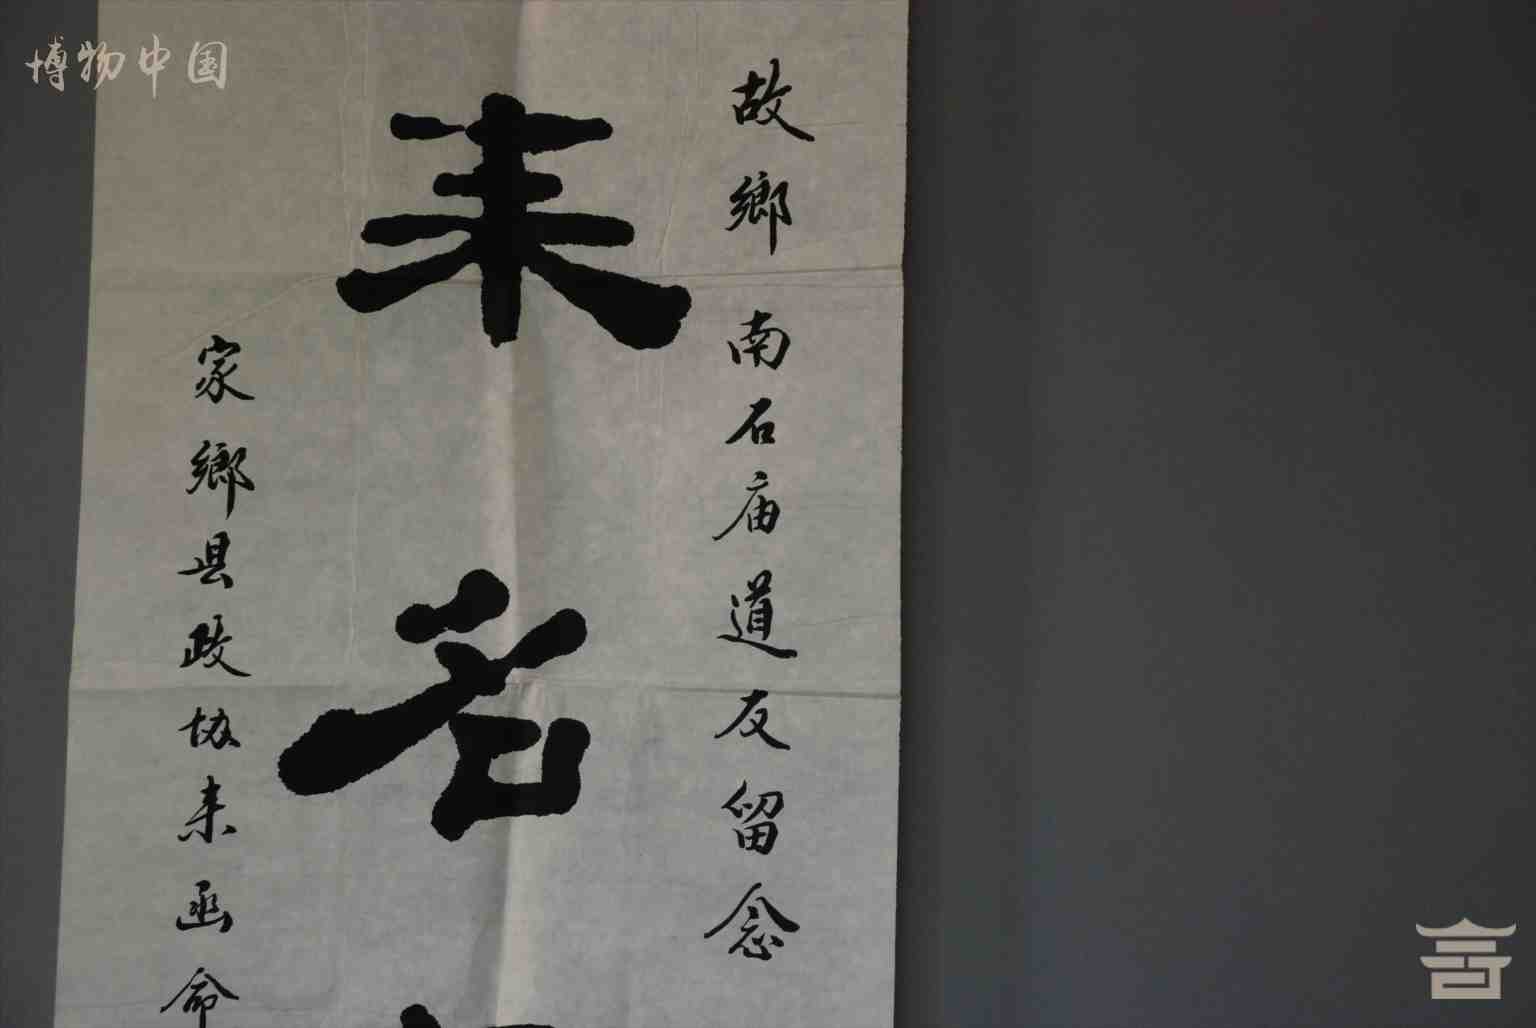 博物中国
故鄉南石庙道友留念
耒名
家鄉县政协来函命